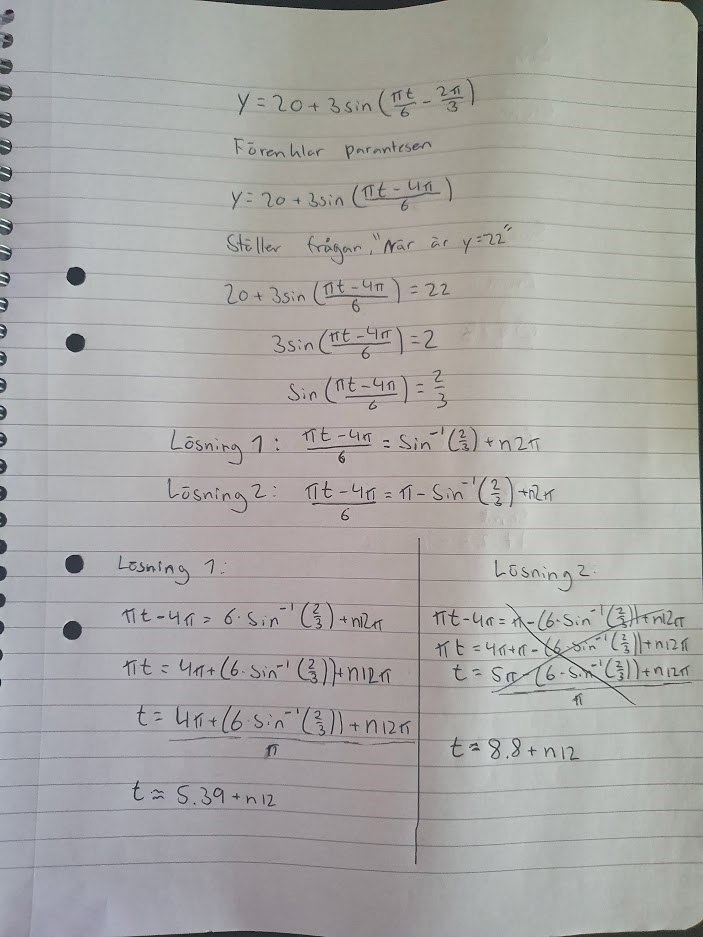 y = 20 + 3sin(πt/6 - 2π/3)
Förenklar parantesen
y = 20 + 3sin((πt - 4π)/6)
Ställer frågan, "När är y = 22"
20 + 3sin((πt - 4π)/6) = 22
3sin((πt - 4π)/6) = 2
Sin((πt - 4π)/6) = 2/3
Lösning 1: (πt - 4π)/6 = Sin⁻¹(2/3) + n2π
Lösning 2: (πt - 4π)/6 = π - Sin⁻¹(2/3) + n2π
Lösning 1:
πt - 4π = 6 · Sin⁻¹(2/3) + n12π
πt = 4π + (6 · Sin⁻¹(2/3)) + n12π
t = (4π + (6 · Sin⁻¹(2/3)) + n12π)/π
t ≈ 5.39 + n12
Lösning 2:
πt - 4π = π - (6 · Sin⁻¹(2/3)) + n12π
πt = 4π + π - (6 · Sin⁻¹(2/3)) + n12π
t = (5π - (6 · Sin⁻¹(2/3)) + n12π)/π
t ≈ 8.8 + n12